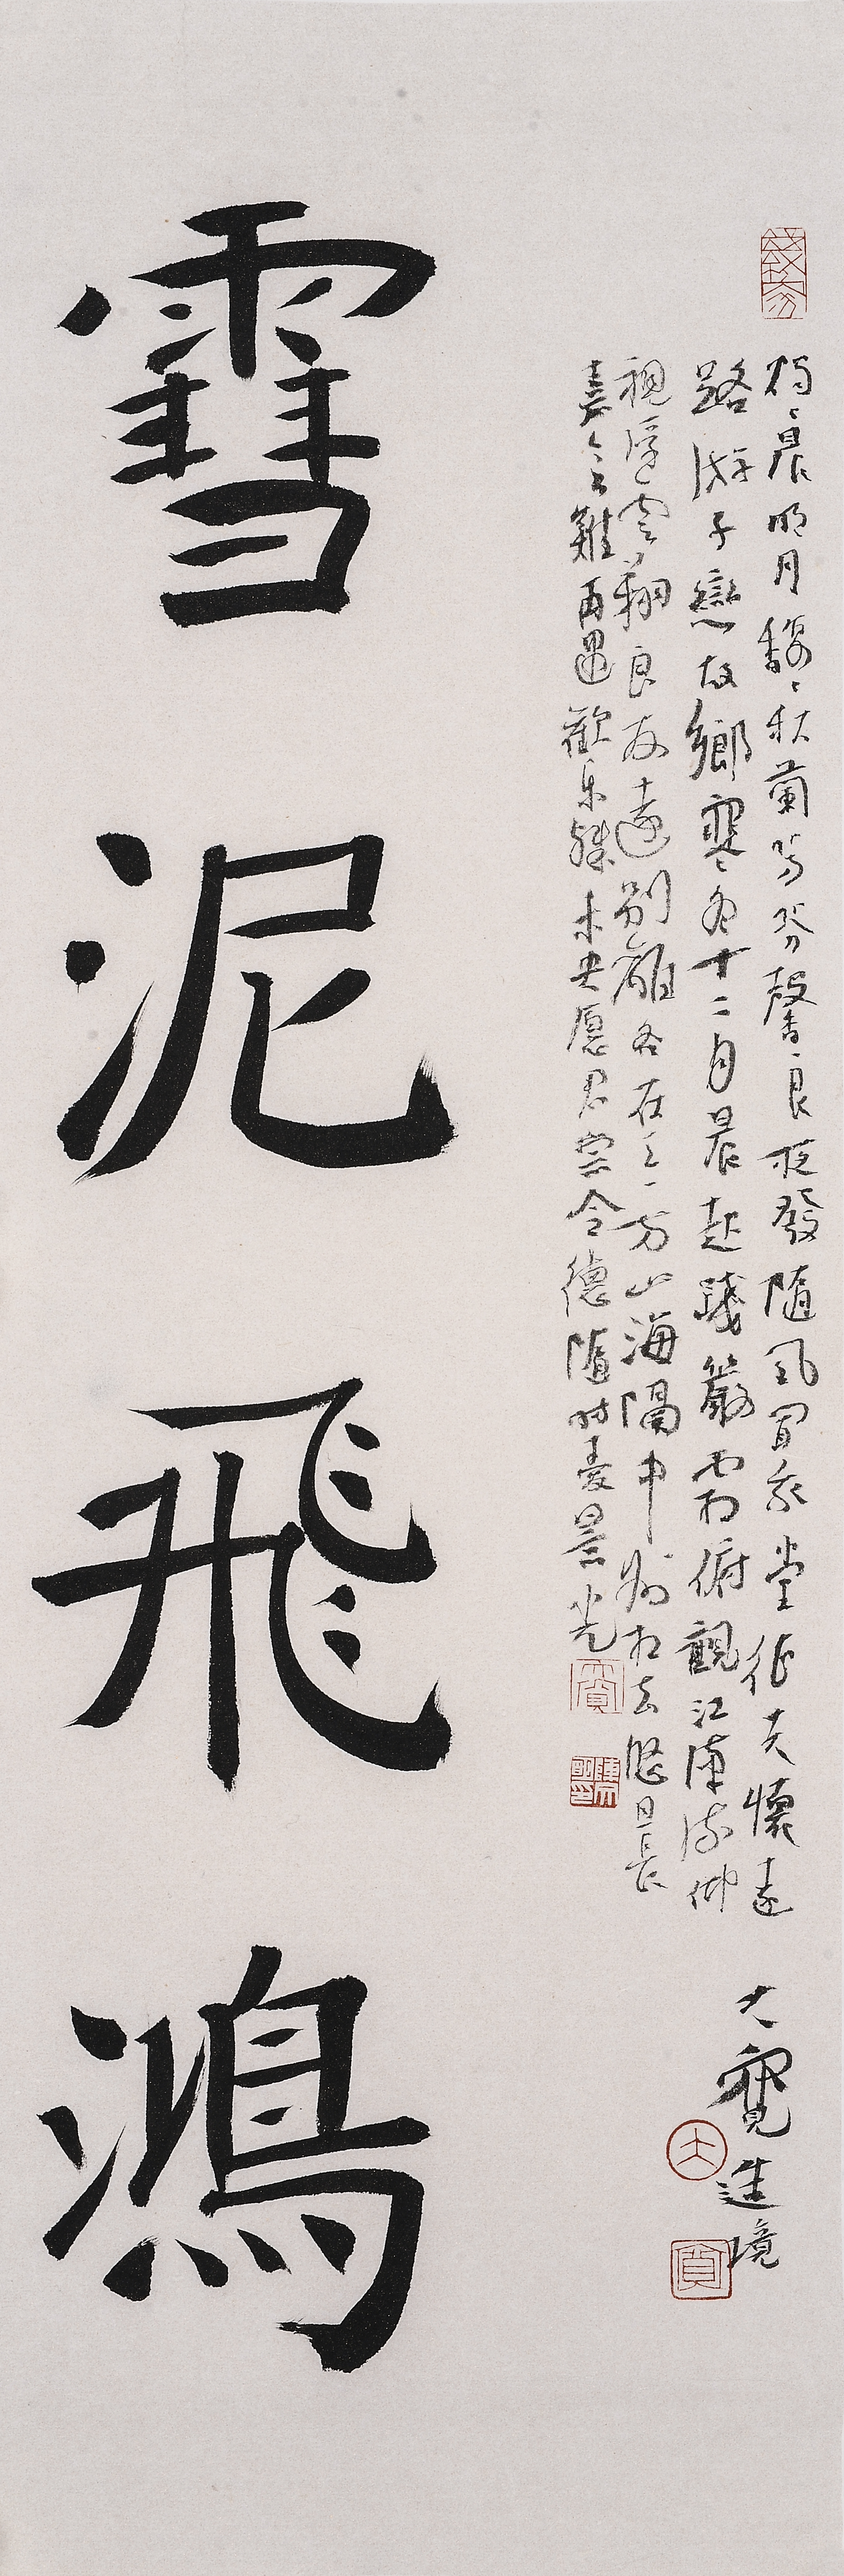 雪泥飛鴻
燭燭晨明月馥馥秋蘭芳芬馨良夜發隨風聞我堂征夫懷遠
路游子戀故鄉寒冬十二月晨起踐嚴霜俯觀江漢流仰
視浮雲翔良友遠別離各在天一方山海隔中州相去悠且長
嘉會難再遇歡樂殊未央愿君崇令德隨時愛景光
大寬造境